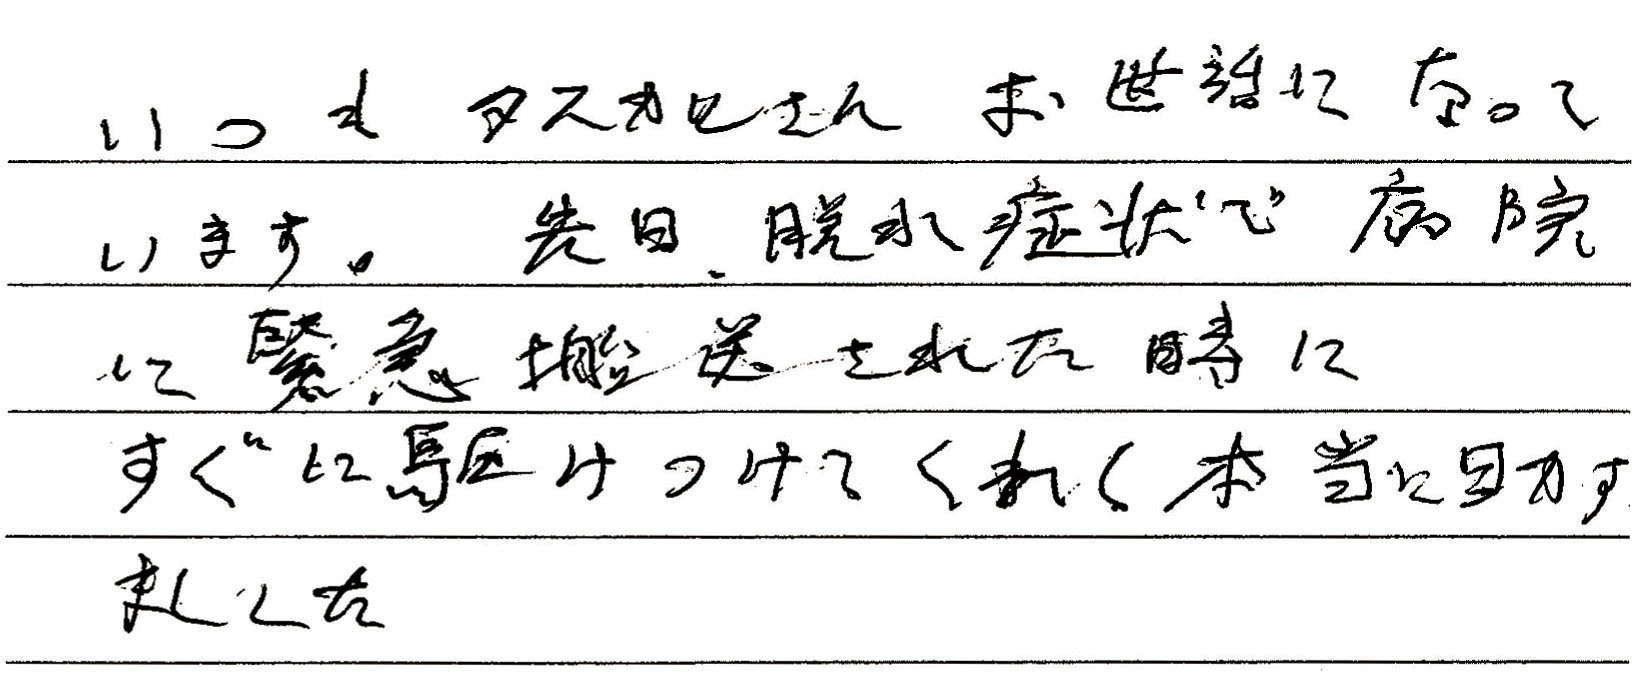 いつも タスカルさん お世話になって
います。 先日、脱水症状で 病院
に緊急搬送された時に
すぐに駆けつけてくれ 本当に助かり
ました